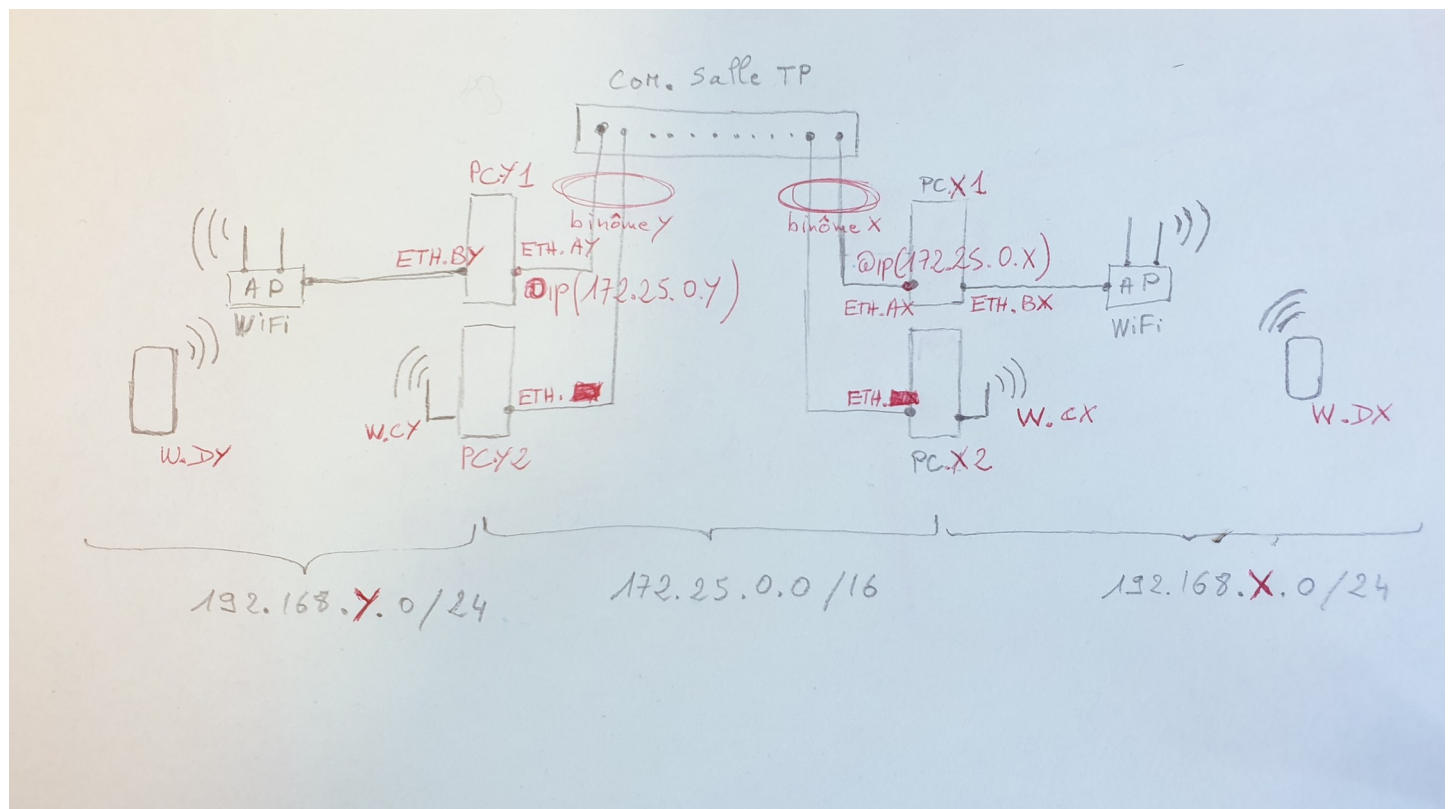 Com. Salle TP
PC.Y1
PC.X1
binôme Y
binôme X
ETH.BY
ETH.AY
@ip(172.25.0.Y)
@ip(172.25.0.X)
ETH.AX
ETH.BX
AP
WiFi
AP
WiFi
ETH.
ETH.
W.CY
W.CX
W.DY
W.DX
PC.Y2
PC.X2
192.168.Y.0/24
172.25.0.0/16
192.168.X.0/24